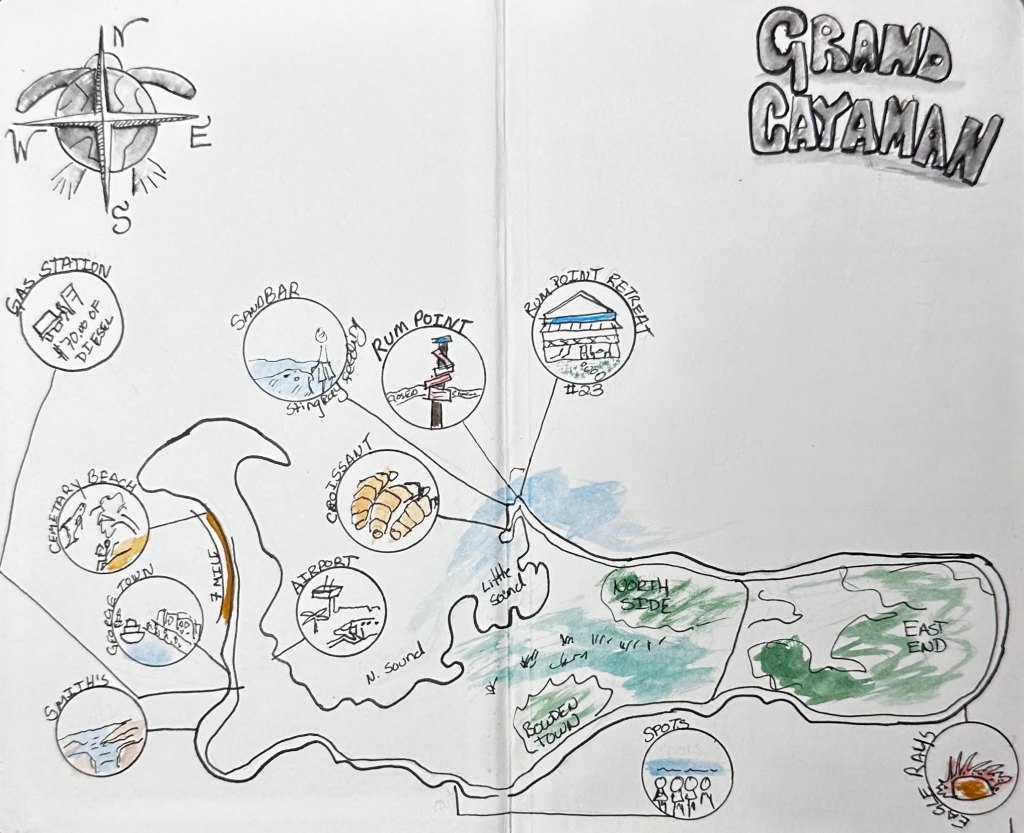 N
W
E
S
GRAND
CAYAMAN
GAS STATION
$70.00 OF
DIESEL
SANDBAR
Stingray feeding
RUM POINT
CLOSED
RUM POINT RETREAT
#23
CROISSANT
CEMETARY BEACH
7 MILE
GEORGE TOWN
AIRPORT
Little
Sound
N. Sound
NORTH
SIDE
EAST
END
BOWDEN
TOWN
SMITH'S
SPOTS
EAGLE RAYS